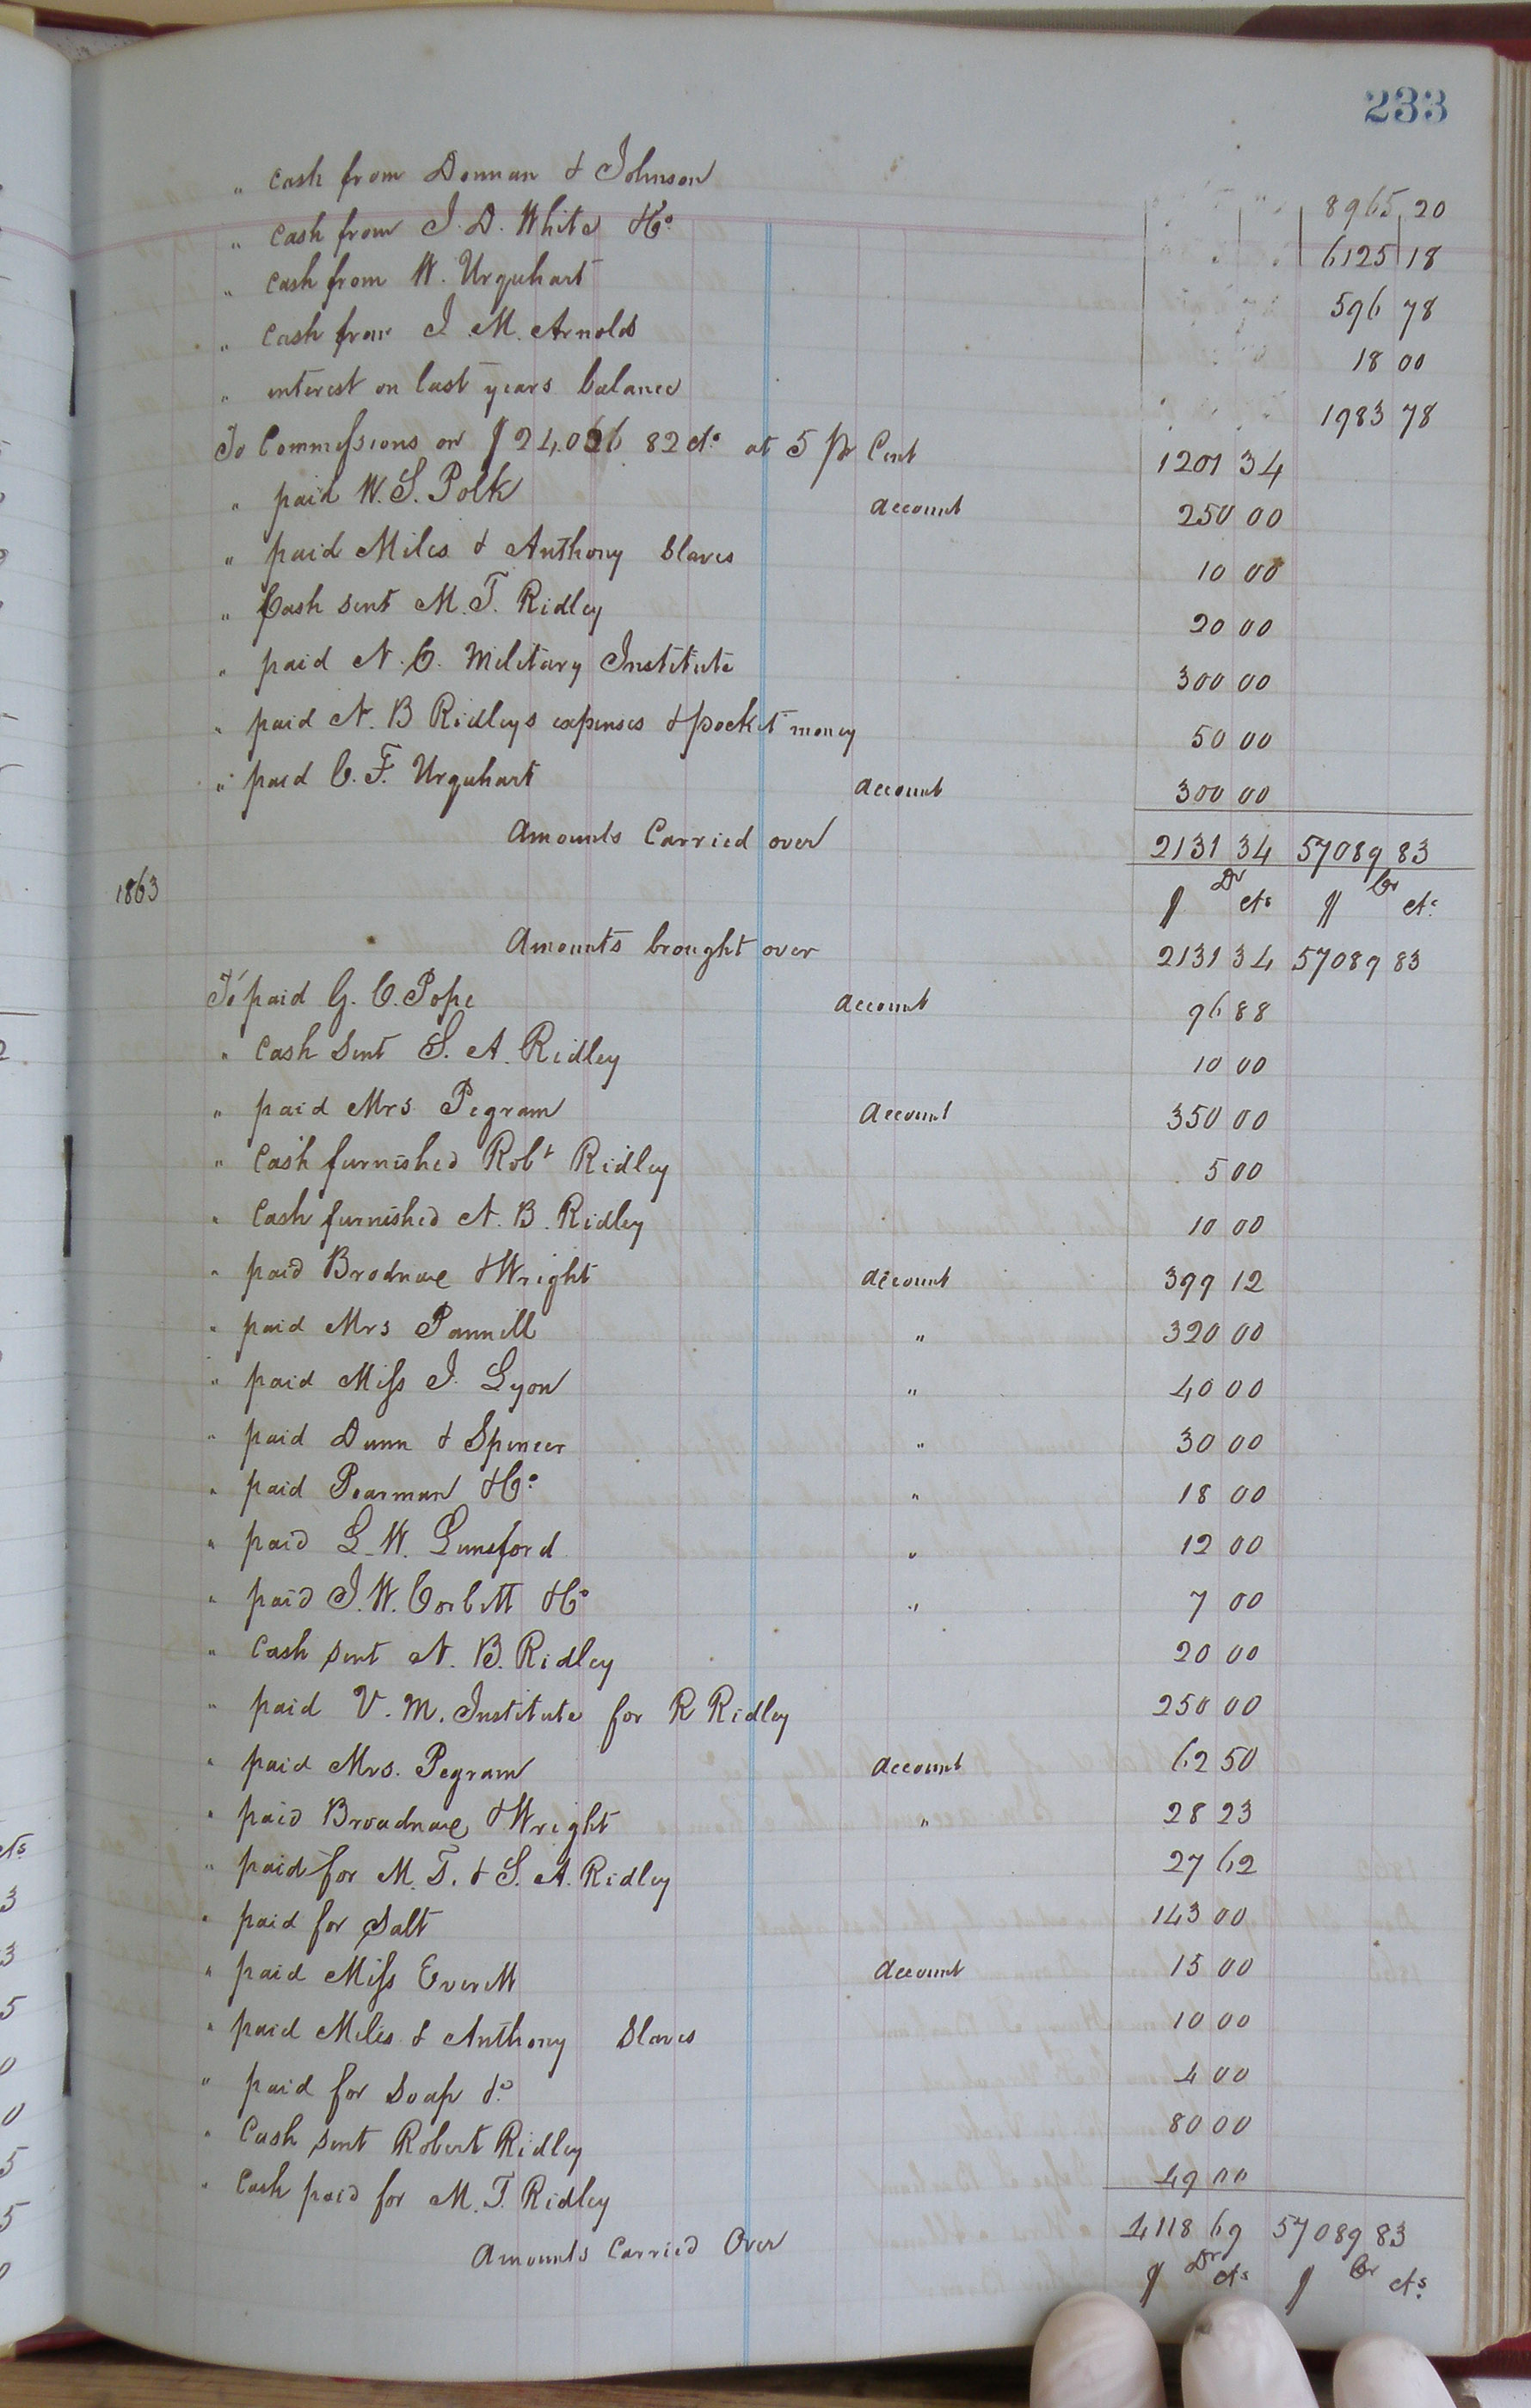 233
" cash from Donnan & Johnson 8965 20
" cash from J. D. White & Co 6125 18
" cash from W. Urquhart 596 78
" cash from J. M. Arnold 18 00
" interest on last years balance 1983 78
To Commissions on $24.026 82 cts at 5 pr Cent 1201 34
" paid W. S. Polk account 250 00
" paid Miles & Anthony Slaves 10 00
" Cash sent M. T. Ridley 20 00
" paid N. C. Military Institute 300 00
" paid N. B Ridleys expenses & pocket money 50 00
" paid C. F. Urquhart account 300 00
Amounts Carried over 2131 34 57089 83
1863 $ Dr cts $ Cr cts
Amounts brought over 2131 34 57089 83
To paid G. C. Pope account 96 88
" Cash sent S. A. Ridley 10 00
" paid Mrs Pegram account 350 00
" Cash furnished Robt Ridley 5 00
" Cash furnished N. B. Ridley 10 00
" paid Brodnax & Wright account 399 12
" paid Mrs Pannill " 320 00
" paid Miss J. Lyon " 40 00
" paid Dunn & Spencer " 30 00
" paid Pearman & Co " 18 00
" paid L. W. Lunsford " 12 00
" paid J. W. Corbitt & Co " 7 00
" Cash sent N. B. Ridley 20 00
" paid V. M. Institute for R Ridley 250 00
" paid Mrs. Pegram account 62 50
" paid Broadnax & Wright " 28 23
" paid for M. T. & S. A. Ridley 27 62
" paid for Salt 143 00
" paid Miss Everett account 15 00
" paid Miles & Anthony Slaves 10 00
" paid for Soap &c 4 00
" Cash sent Robert Ridley 80 00
" Cash paid for M. T. Ridley 49 00
Amounts Carried Over 4118 69 57089 83
$ Dr cts $ Cr cts